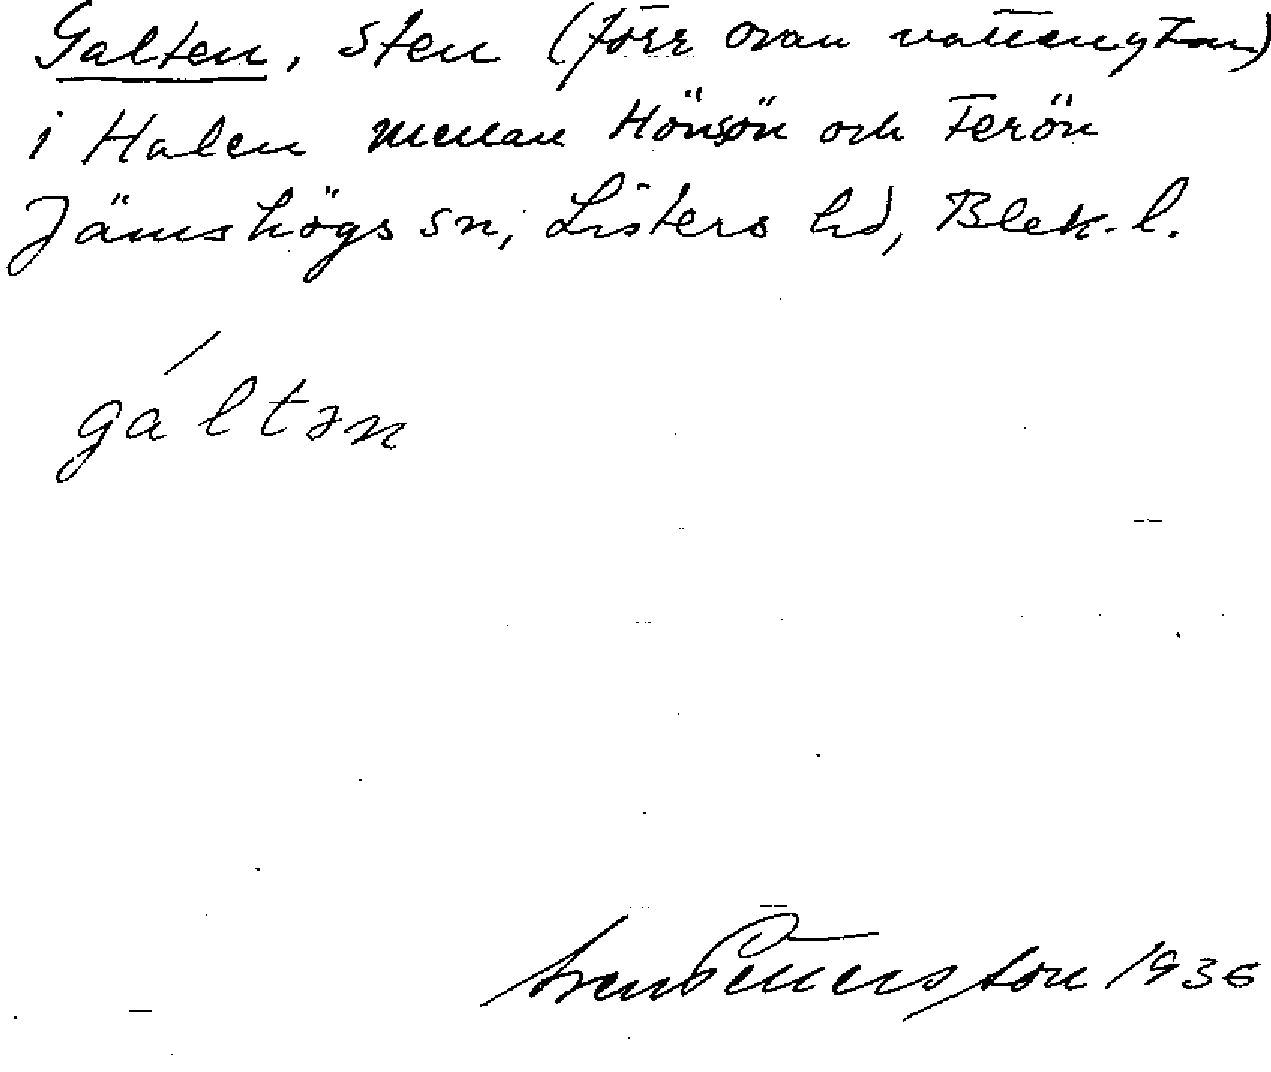 Galten, sten (förr ovan vattenytan)
i Halen mellan Hönsön och Terön
Jämshögs sn, Listers hd, Blek. l.
gáltən
Sven Pettersson 1936